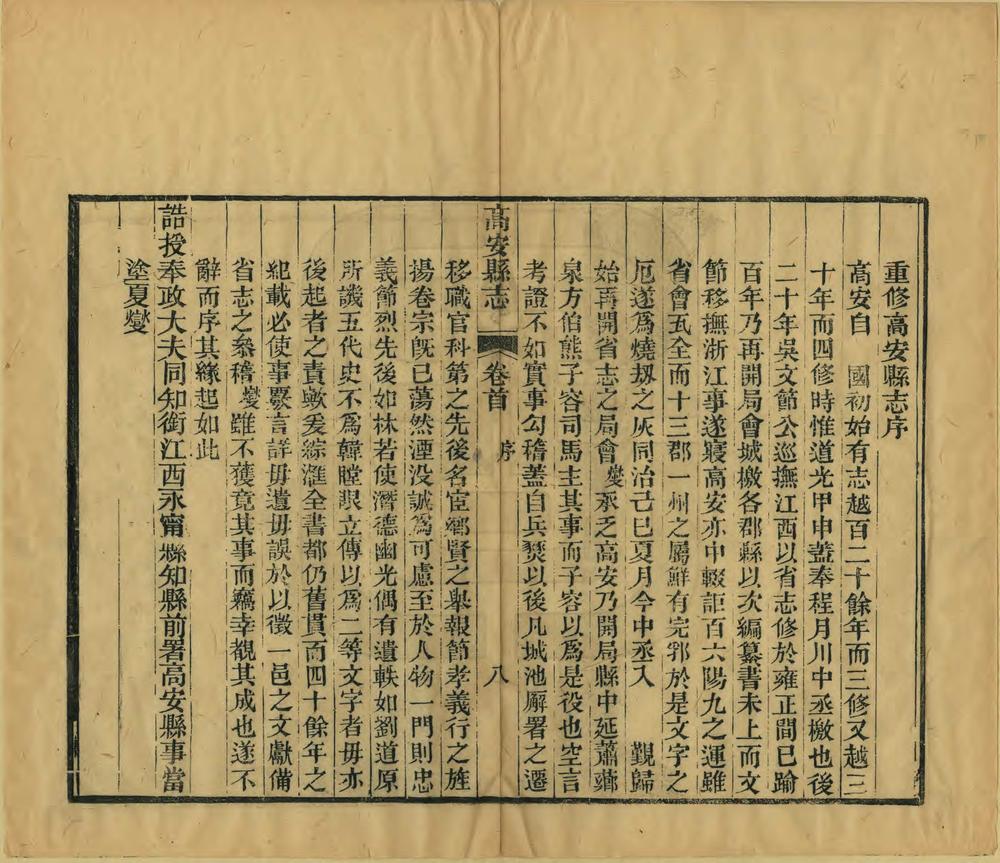 重修高安縣志序
高安自　國初始有志越百二十餘年而三修又越三
十年而四修時惟道光甲申蓋奉程月川中丞檄也後
二十年吳文節公巡撫江西以省志修於雍正間已踰
百年乃再開局會城檄各郡縣以次編纂書未上而文
節移撫浙江事遂寢高安亦中輟詎百六陽九之運雖
省會瓦全而十三郡一州之屬鮮有完郛於是文字之
厄遂爲燒刼之灰同治己巳夏月今中丞入　覲歸
始再開省志之局會燮承乏高安乃開局縣中延蕭薌
泉方伯熊子容司馬主其事而子容以爲是役也空言
考證不如實事勾稽蓋自兵燹以後凡城池廨署之遷
高安縣志　卷首　序　八
移職官科第之先後名宦鄕賢之舉報節孝義行之旌
揚卷宗旣已蕩然湮没誠爲可慮至於人物一門則忠
義節烈先後如林若使潛德幽光偶有遺軼如劉道原
所譏五代史不爲韓瞠眼立傳以爲二等文字者毋亦
後起者之責歟爰綜滙全書都仍舊貫而四十餘年之
紀載必使事覈言詳毋遺毋誤於以徵一邑之文獻備
省志之叅稽燮雖不獲竟其事而竊幸觀其成也遂不
辭而序其緣起如此
誥授奉政大夫同知銜江西永甯縣知縣前署高安縣事當
塗夏燮